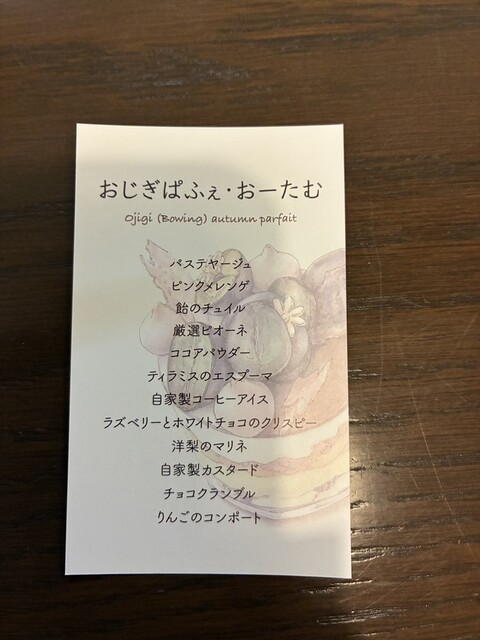 おじぎぱふぇ・おーたむ
Ojigi (Bowing) autumn parfait
パステヤージュ
ピンクメレンゲ
飴のチュイル
厳選ピオーネ
ココアパウダー
ティラミスのエスプーマ
自家製コーヒーアイス
ラズベリーとホワイトチョコのクリスピー
洋梨のマリネ
自家製カスタード
チョコクランブル
りんごのコンポート